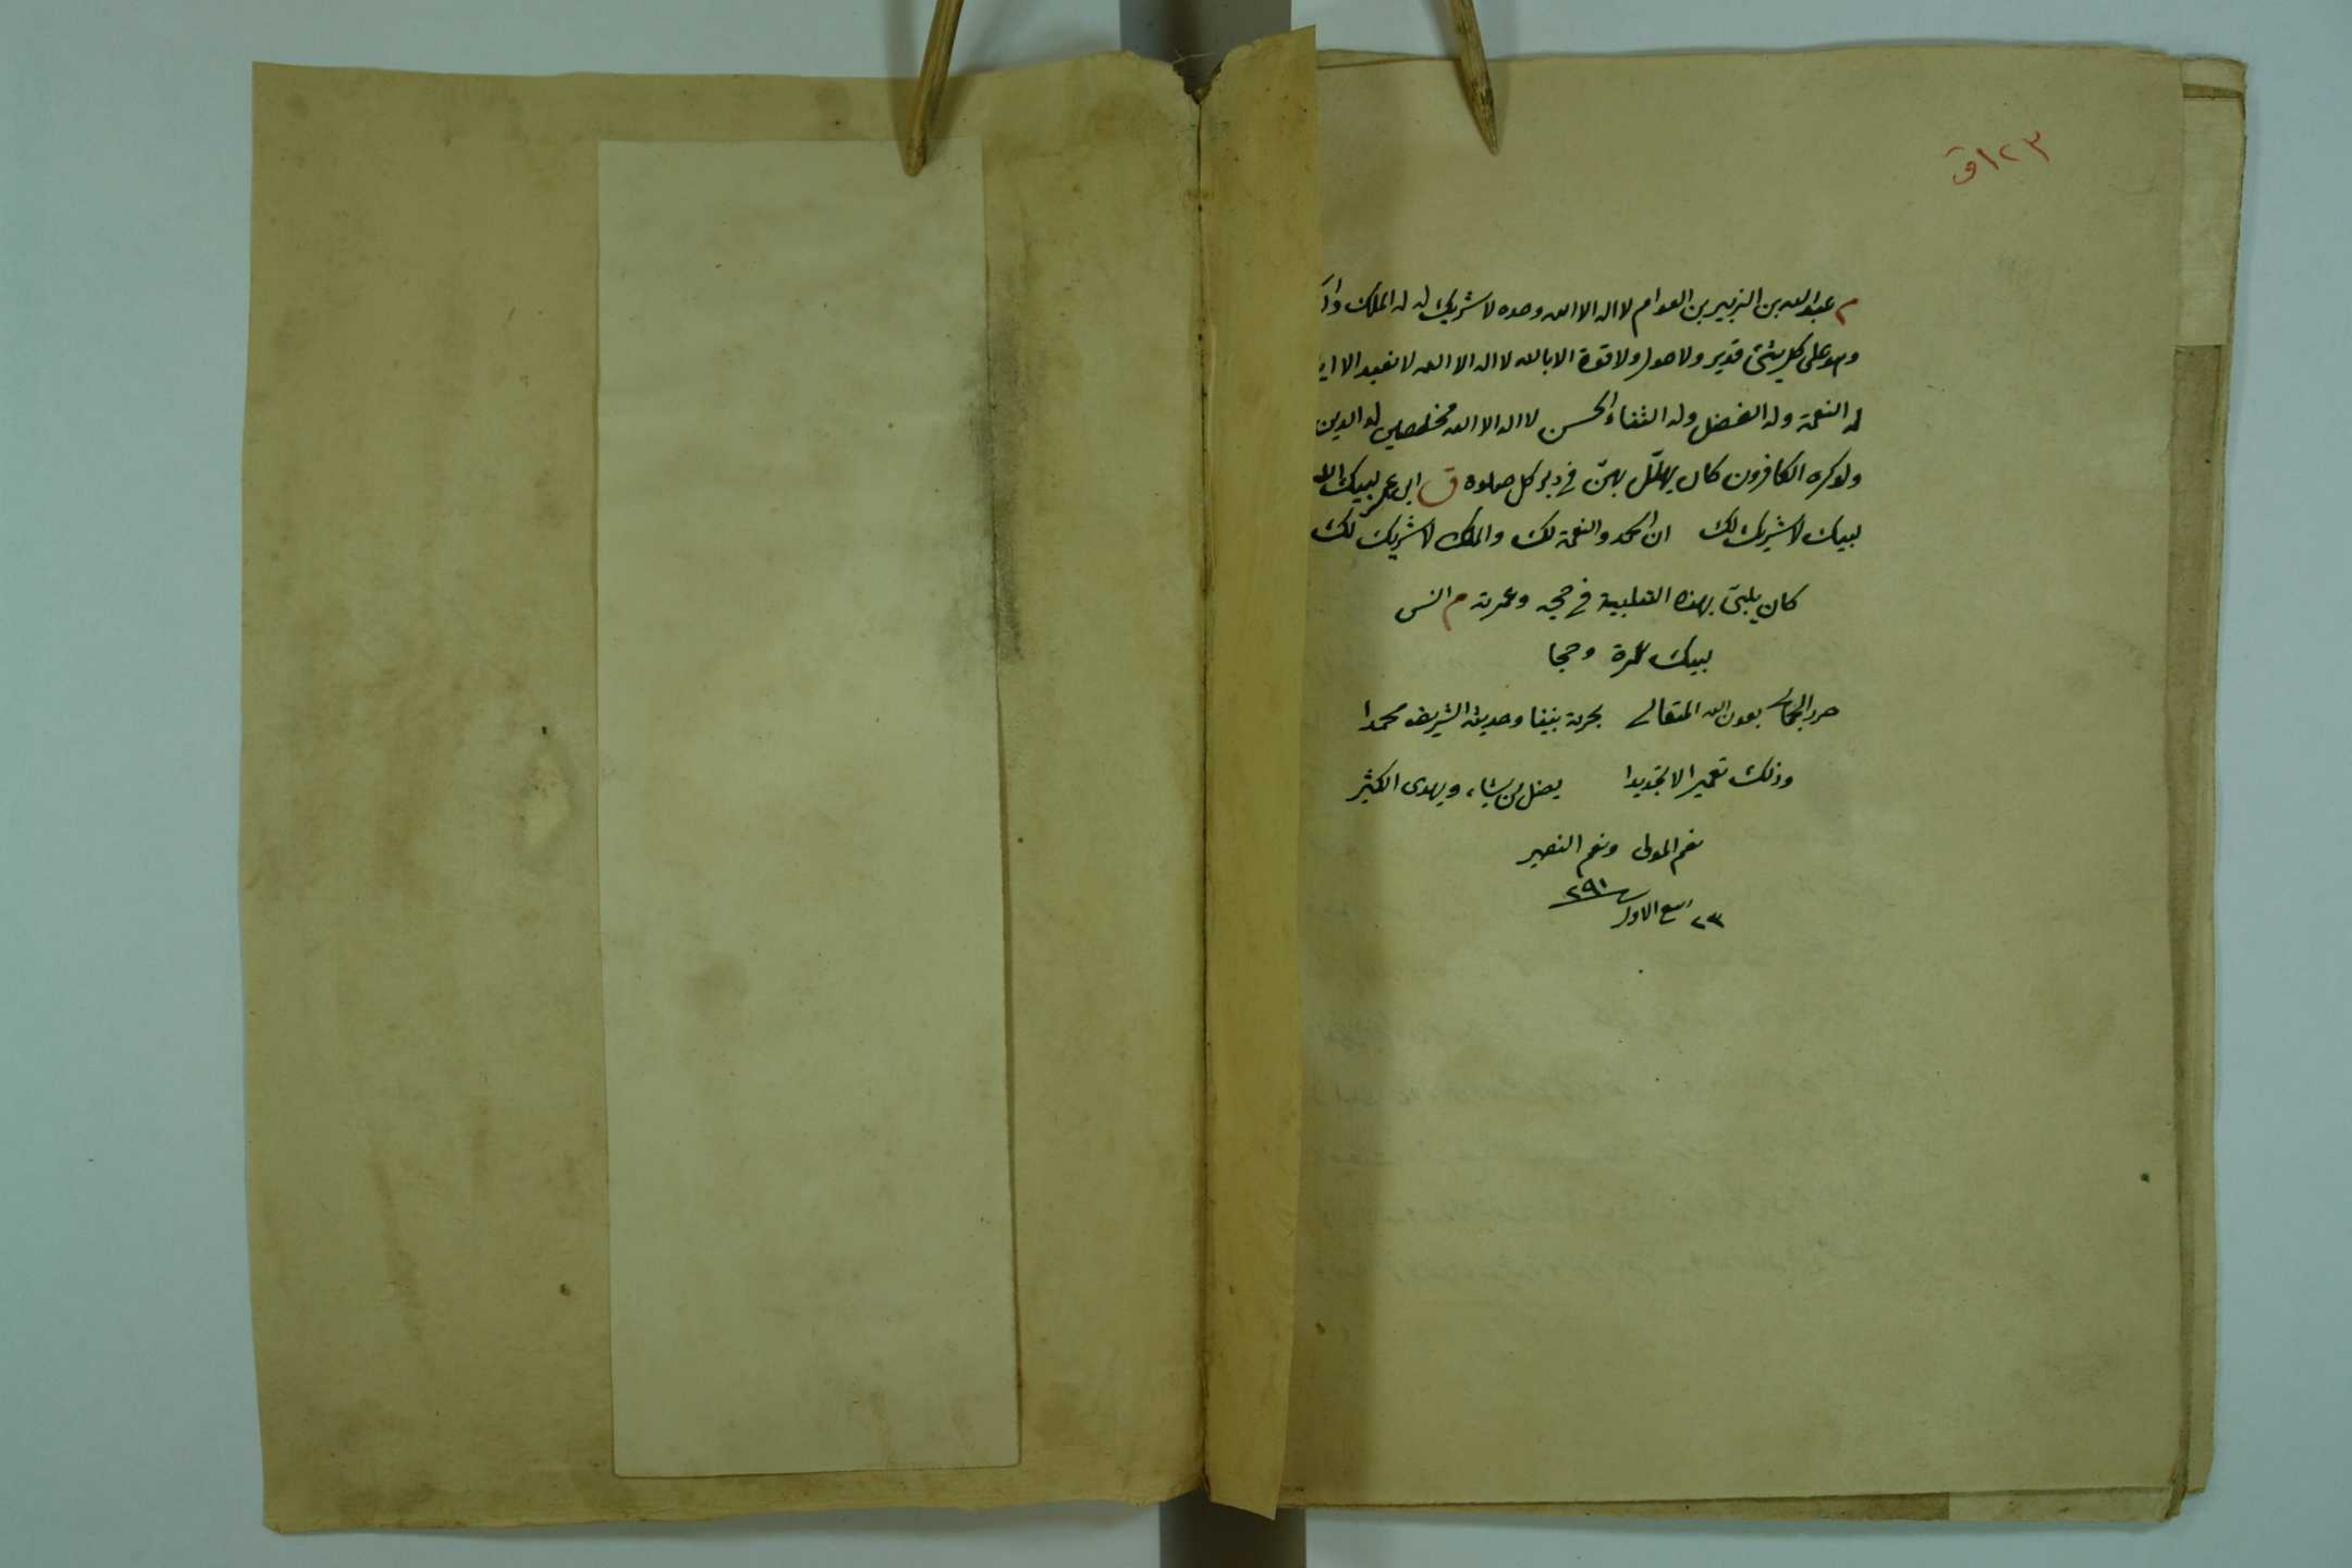 ١٢٣ق
م عبد الله بن الزبير بن العوام لا اله الا الله وحده لا شريك له له الملك
وهو على كل شئ قدير ولا حول ولا قوة الا بالله لا اله الا الله لا نعبد الا
له النعمة وله الفضل وله الثناء الحسن لا اله الا الله مخلصين له الدين
ولو كره الكافرون كان يهلل بهن فى دبر كل صلوة ق ابن عمر لبيك
لبيك لا شريك لك ان الحمد والنعمة لك والملك لا شريك لك
كان يلبى بهذه التلبية فى حجه وعمرته م انس
لبيك عمرة وحجا
بعون الله المتعالى بحرمة نبينا وحديثه الشريف محمدا
وذلك تعميرا لا تجديدا يضل من يشاء ويهدى الكثير
نعم المولى ونعم النصير
٢٣ ربيع الاول ٢٩١